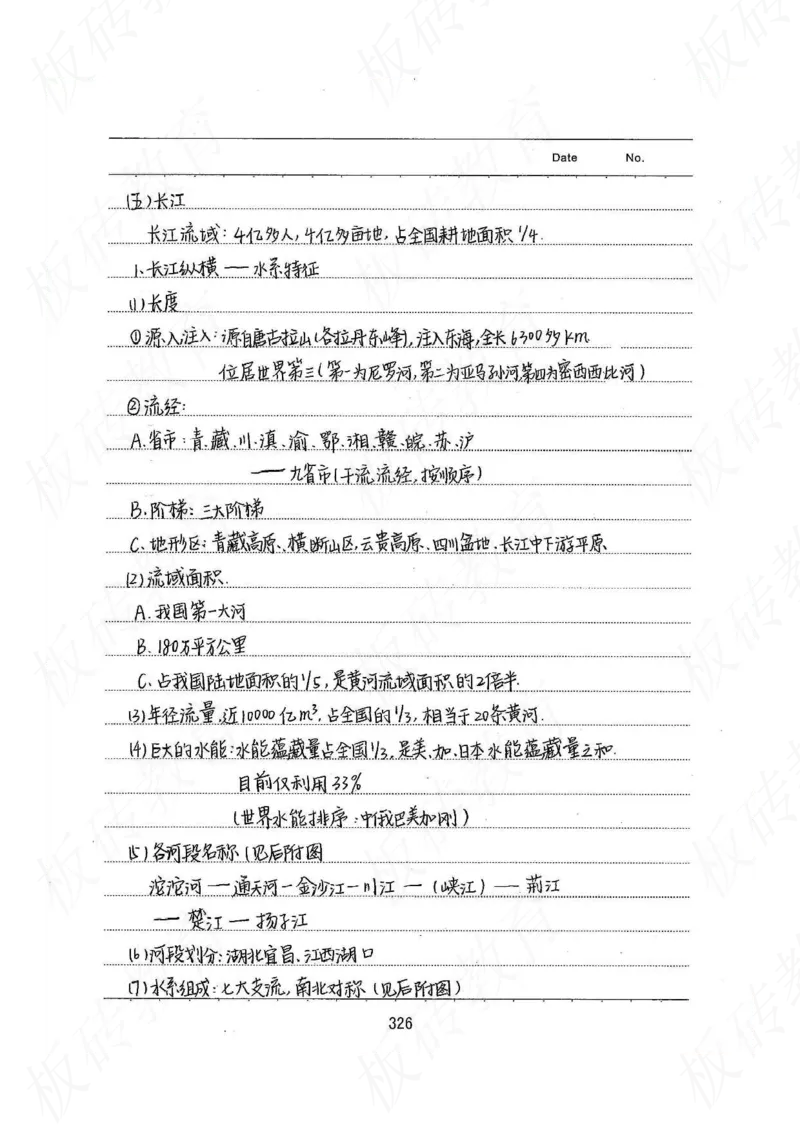 Date No.
(五)长江
长江流域：4亿多人，4亿多亩地，占全国耕地面积1/4.
1、长江纵横——水系特征
(1)长度
①源、入注入：源自唐古拉山(各拉丹东峰)，注入东海，全长6300多km
位居世界第三(第一为尼罗河，第二为亚马孙河第四为密西西比河)
②流经：
A.省市：青、藏、川、滇、渝、鄂、湘、赣、皖、苏、沪
——九省市(干流流经，按顺序)
B.阶梯：三大阶梯
C.地形区：青藏高原、横断山区，云贵高原、四川盆地、长江中下游平原
(2)流域面积.
A.我国第一大河
B.180万平方公里
C.占我国陆地面积的1/5，是黄河流域面积的2倍半.
(3)年径流量，近10000亿m³，占全国的1/3，相当于20条黄河.
(4)巨大的水能：水能蕴藏量占全国1/3，是美、加、日本水能蕴藏量之和.
目前仅利用33%
(世界水能排序：中俄巴美加刚)
(5)各河段名称(见后附图
沱沱河—通天河—金沙江—川江—(峡江)—荆江
—楚江—扬子江
(6)河段划分：湖北宜昌、江西湖口
(7)水系组成：七大支流，南北对称(见后附图)
326
板砖教育